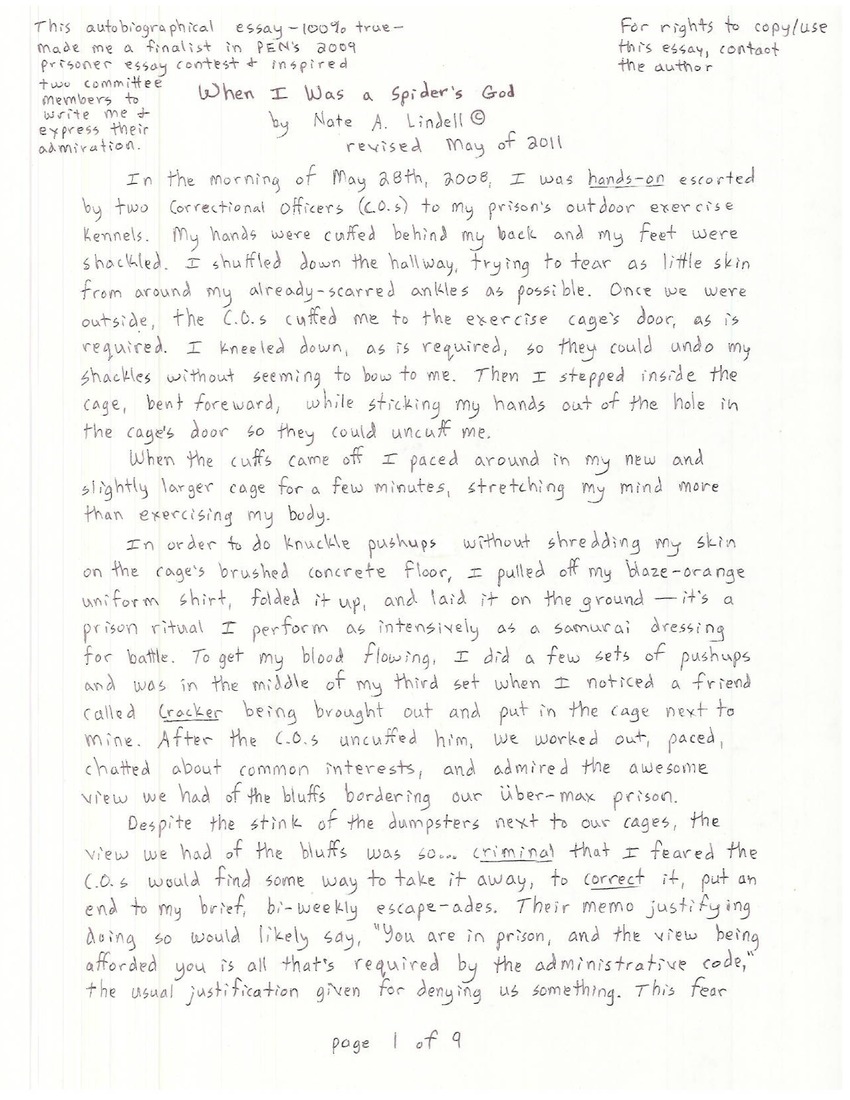 This autobiographical essay - 100% true -
made me a finalist in PEN's 2009
prisoner essay contest & inspired
two committee
members to
write me &
express their
admiration.
For rights to copy/use
this essay, contact
the author
When I Was a Spider's God
by Nate A. Lindell ©
revised May of 2011
In the morning of May 28th, 2008, I was hands-on escorted
by two Correctional Officers (C.O.s) to my prison's outdoor exercise
kennels. My hands were cuffed behind my back and my feet were
shackled. I shuffled down the hallway, trying to tear as little skin
from around my already-scarred ankles as possible. Once we were
outside, the C.O.s cuffed me to the exercise cage's door, as is
required. I kneeled down, as is required, so they could undo my
shackles without seeming to bow to me. Then I stepped inside the
cage, bent foreward, while sticking my hands out of the hole in
the cage's door so they could uncuff me.
When the cuffs came off I paced around in my new and
slightly larger cage for a few minutes, stretching my mind more
than exercising my body.
In order to do knuckle pushups without shredding my skin
on the cage's brushed concrete floor, I pulled off my blaze-orange
uniform shirt, folded it up, and laid it on the ground — it's a
prison ritual I perform as intensively as a samurai dressing
for battle. To get my blood flowing, I did a few sets of pushups
and was in the middle of my third set when I noticed a friend
called Cracker being brought out and put in the cage next to
mine. After the C.O.s uncuffed him, we worked out, paced,
chatted about common interests, and admired the awesome
view we had of the bluffs bordering our über-max prison.
Despite the stink of the dumpsters next to our cages, the
view we had of the bluffs was so... criminal that I feared the
C.O.s would find some way to take it away, to correct it, put an
end to my brief, bi-weekly escape-ades. Their memo justifying
doing so would likely say, "You are in prison, and the view being
afforded you is all that's required by the administrative code,"
the usual justification given for denying us something. This fear
page 1 of 9